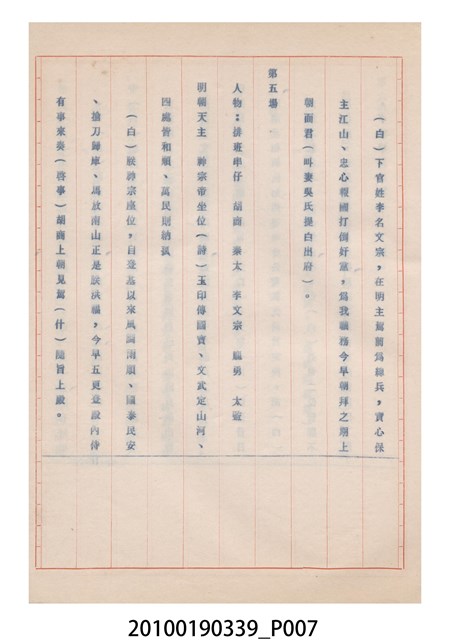 (白)下官姓李名文宗,在明主駕前爲總兵,實心保
主江山、忠心報國打倒奸黨,爲我職務今早朝拜之期上
朝面君(叫妻吳氏提白出府)。
第五場
人物:排班串仔 胡商 秦太 李文宗 勇 太監
明朝天主 神宗帝坐位(詩)玉印傳國寶、文武定山河、
四處皆和順、萬民則納
(白)朕神宗座位,自登基以來風調雨順、國泰民安
、搶刀歸庫、馬放南山正是朕洪福,今早五更登殿內侍
有事來奏(啓事)胡商上朝見駕(什)隨旨上殿。
20100190339_P007